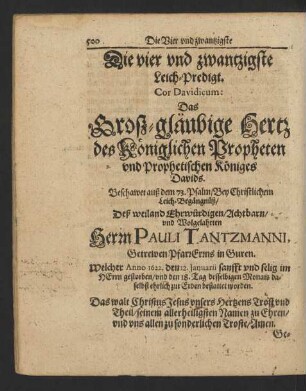 500 Die Vier vnd zwantzigste
Die vier vnd zwantzigste
Leich-Predigt.
Cor Davidicum:
Das
Groß-gläubige Hertz
des Königlichen Propheten
vnd Prophetischen Königes
Davids.
Beschawet auß dem 73. Psalm/ Bey Christlichem
Leich-Begängnüß/
Deß weiland Ehrwürdigen/ Achtbarn/
vnd Wolgelahrten
Herrn PAULI TANTZMANNI.
Getrewen PfarrErns in Guren.
Welcher Anno 1622. den 12. Januarii sanfft vnd selig im
HErrn gestorben/ vnd den 18. Tag desselbigen Monats da-
selbst ehrlich zur Erden bestattet worden.
Das walt Christus Jesus vnsers Hertzens Trost vnd
Theil/ seinem allerheiligsten Namen zu Ehren/
vnd vns allen zu sonderlichen Troste/ Amen.
Ge-